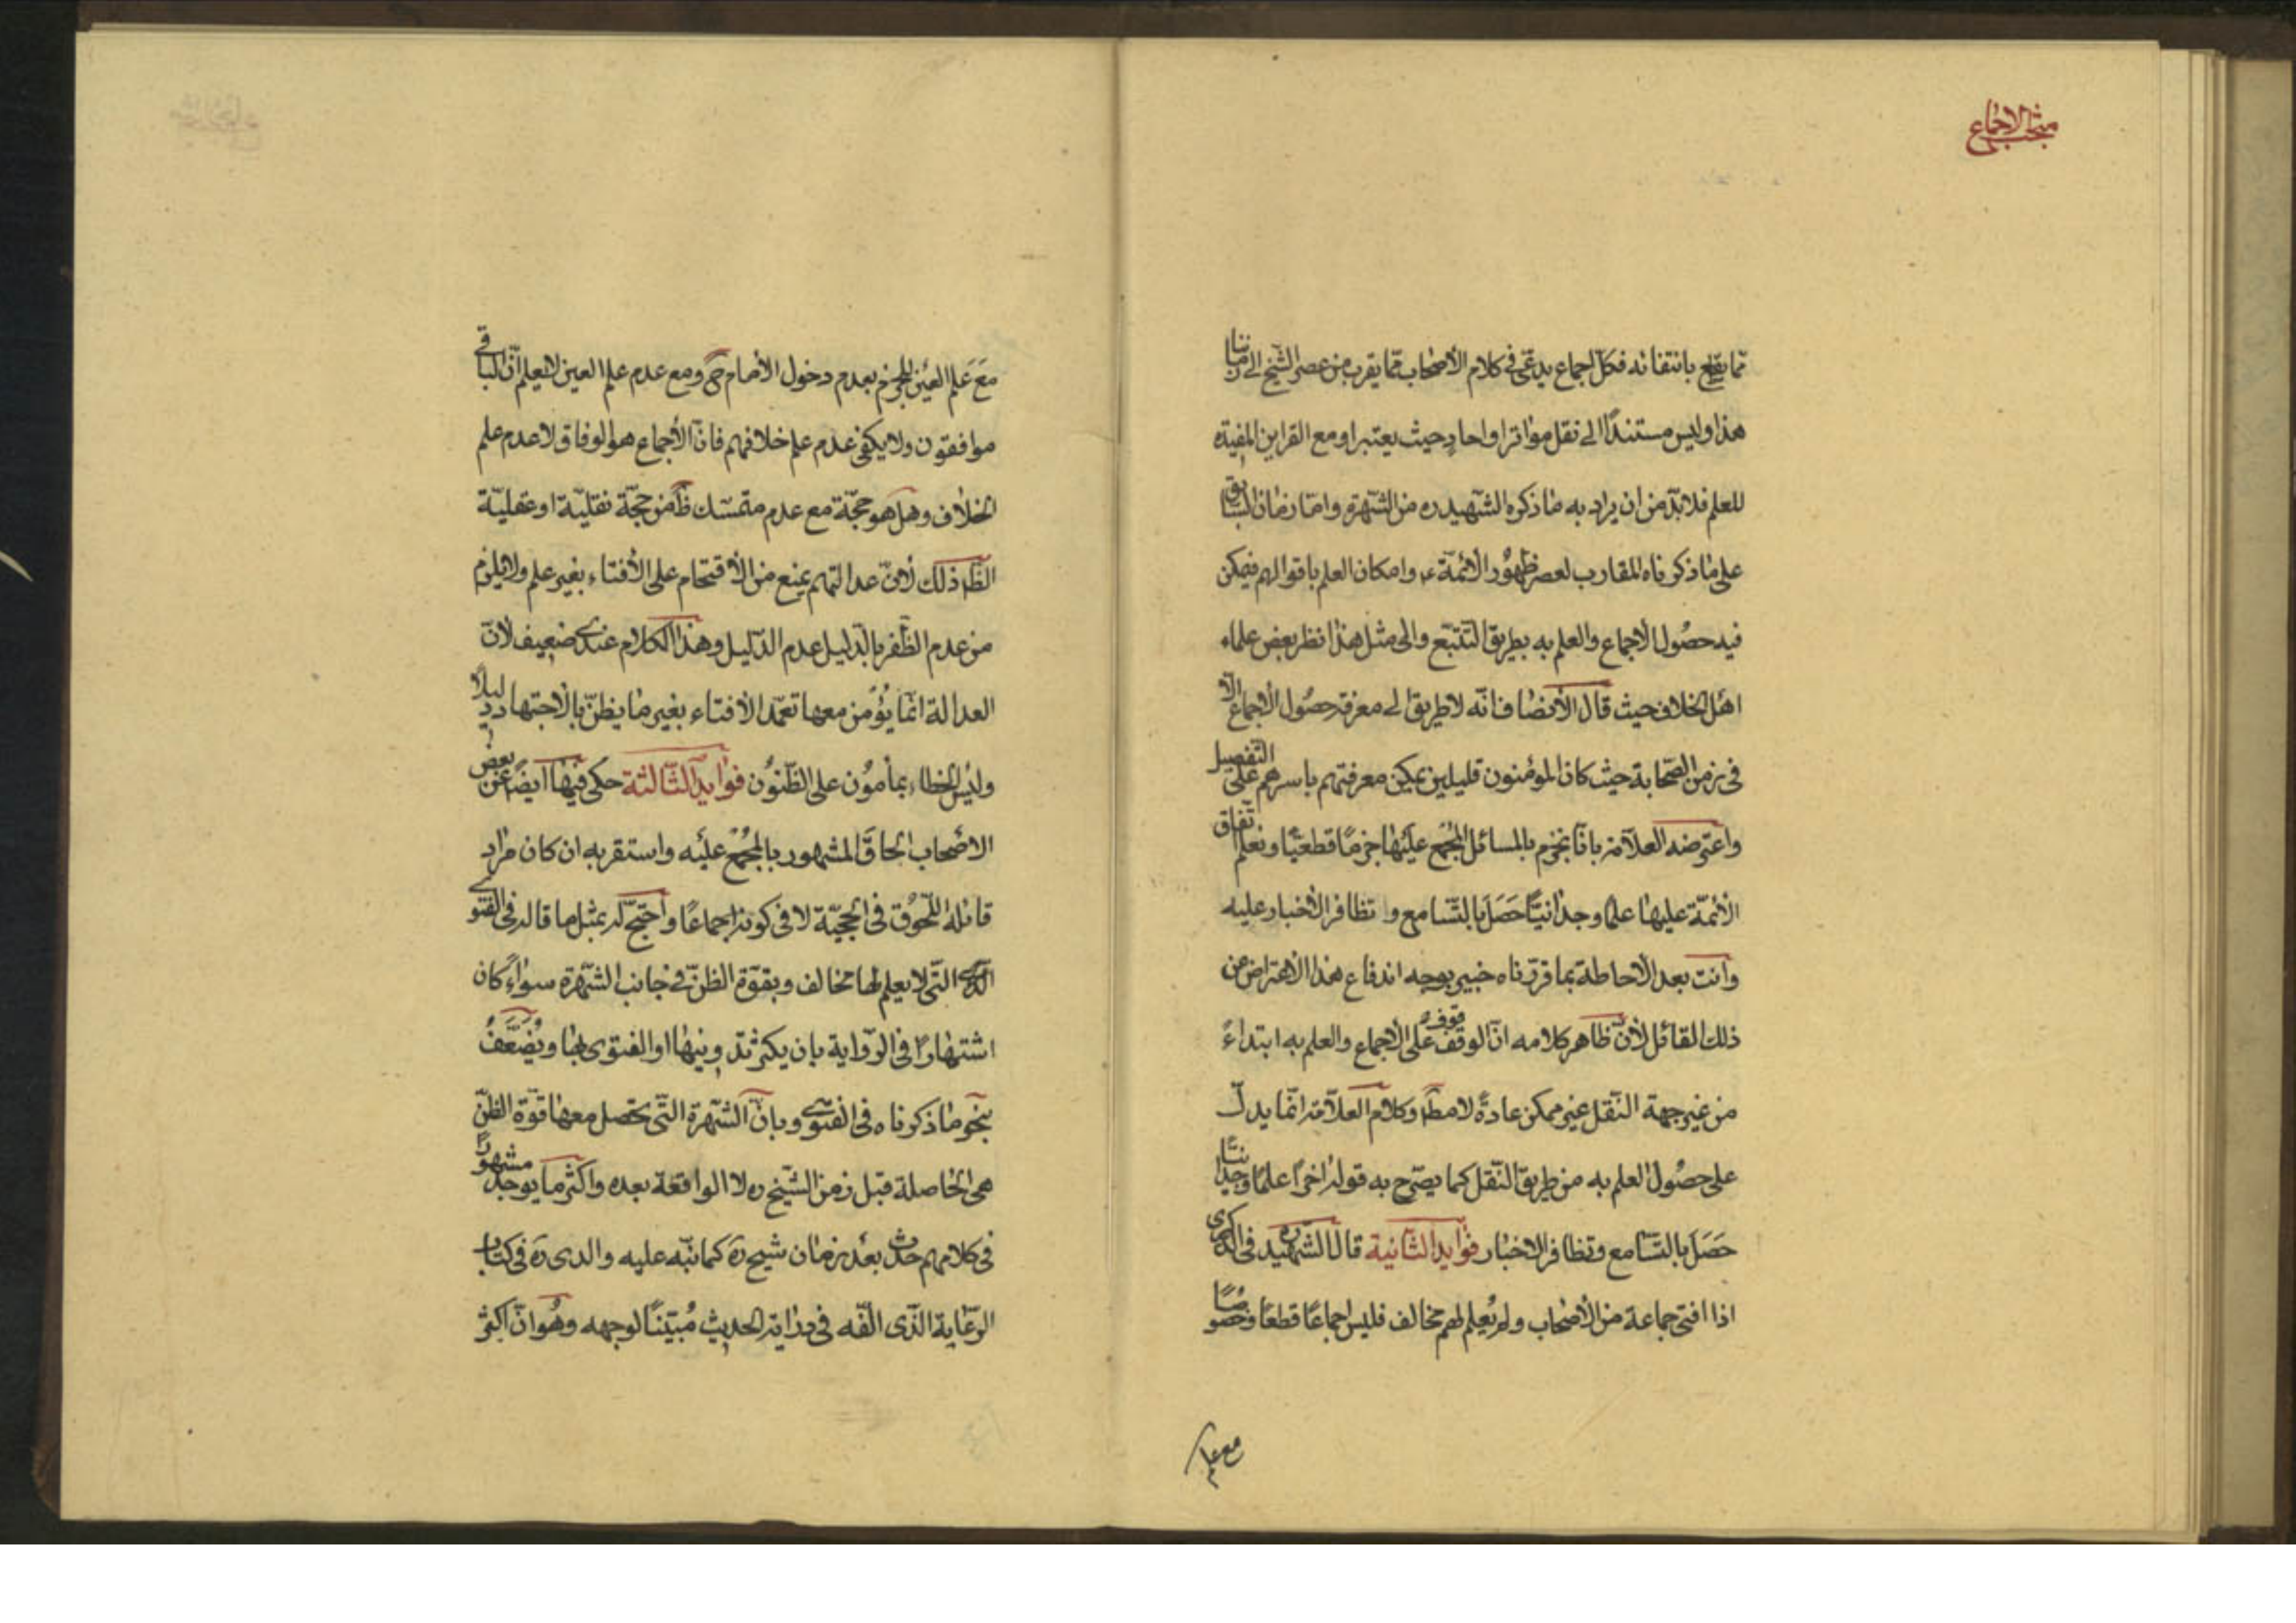 مبحث الاجماع
مما يقطع بانتفائه فكل اجماع يدعى في كلام الأصحاب مما يقرب من عصر الشيخ الى زماننا
هذا وليس مستندًا الى نقل متواتر او احاد حيث يعتبر او مع القراين المفيدة
للعلم فلا بدّ من ان يراد به ما ذكره الشهيد ره من الشهرة واما زمان السابق
على ما ذكرناه المقارب لعصر ظهور الائمة ع وامكان العلم باقوالهم فيمكن
فيه حصول الاجماع والعلم به بطريق التتبع والى مثل هذا نظر بعض علماء
اهل الخلاف حيث قال الأنصاف انّه لا طريق الى معرفة حصول الاجماع الّا
في زمن الصحابة حيث كان المؤمنون قليلين يمكن معرفتهم باسرهم على التفصيل
واعترضه العلامة بانّا نجزم بالمسائل المجمع عليها جزمًا قطعيًّا ونعلم اتفاق
الأئمّة عليها علما وجدانيًّا حَصَلَ بالتّسامع و تظافر الأخبار عليه
وانت بعد الاحاطة بما قرّرناه خبير بوجه اندفاع هذا الاعتراض عن
ذلك القائل لأن ظاهر كلامه انّ الوقوف على الاجماع والعلم به ابتداءً
من غير جهة النقل غير ممكن عادةً لا مط وكلام العلامة انّما يدلّ
على حصول العلم به من طريق النّقل كما يصرّح به قوله اخرًا علمًا وجدانيًّا
حَصَلَ بالتّسامع وتظافر الاخبار فوايد الثانية قال الشهيد ره في الذكرى
اذا افتى جماعة من الأصحاب ولم يُعلم لهم مخالف فليس اجماعًا قطعًا وخصوصًا
مع علم
مَعَ عَلم العين للجزم بعدم دخول الأمام ح ومع عدم علم العين لا يعلم انّ الباقي
موافقون ولا يكفي عدم علم خلافهم فانّ الأجماع هو الوفاق لا عدم علم
الخلاف وهل هو حجّة مع عدم متمسّك ظ من حجّة نقليّة او عقليّة
الظ ذلك لأنّ عدالتهم يمنع من الأقتحام على الأفتاء بغير علم ولا يلزم
من عدم الظّفر بالدّليل عدم الدّليل وهذا الكلام عندي ضعيف لأنّ
العدالة انّما يؤمن معها تعمّد الأفتاء بغير ما يظنّ بالاجتهاد دليلًا
وليس الخطاء بمأمون على الظّنون فوايد الثالثة حكى فيها ايضًا عن بعض
الاصحاب الحاق المشهور بالمجمع عليه واستقربه ان كان مراد
قائله اللحوق في الحجيّة لا في كونه اجماعًا واحتج له بمثل ما قاله في الفتوى
الّتى لا يعلم لها مخالف وبقوّة الظنّ في جانب الشّهرة سواءً كان
اشتهارًا في الرّواية بان يكثر تدوينها او الفتوى بها ويُضَعَّفُ
بنحو ما ذكرناه في الفتوى وبانّ الشّهرة التّى تحصل معها قوّة الظنّ
هى الحاصلة قبل زمن الشّيخ ره لا الواقعة بعده واكثر ما يوجد مشهورًا
في كلامهم حدث بعد زمان شيخ ره كما نبّه عليه والدى ره في كتاب
الرّعاية الّذى الّفه في دراية الحديث مُبيّنًا لوجهه وهُو انّ اكثر